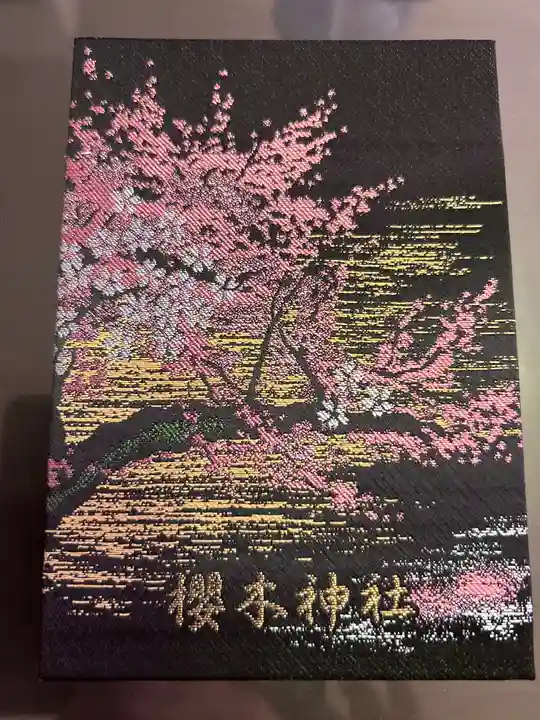 櫻木神社